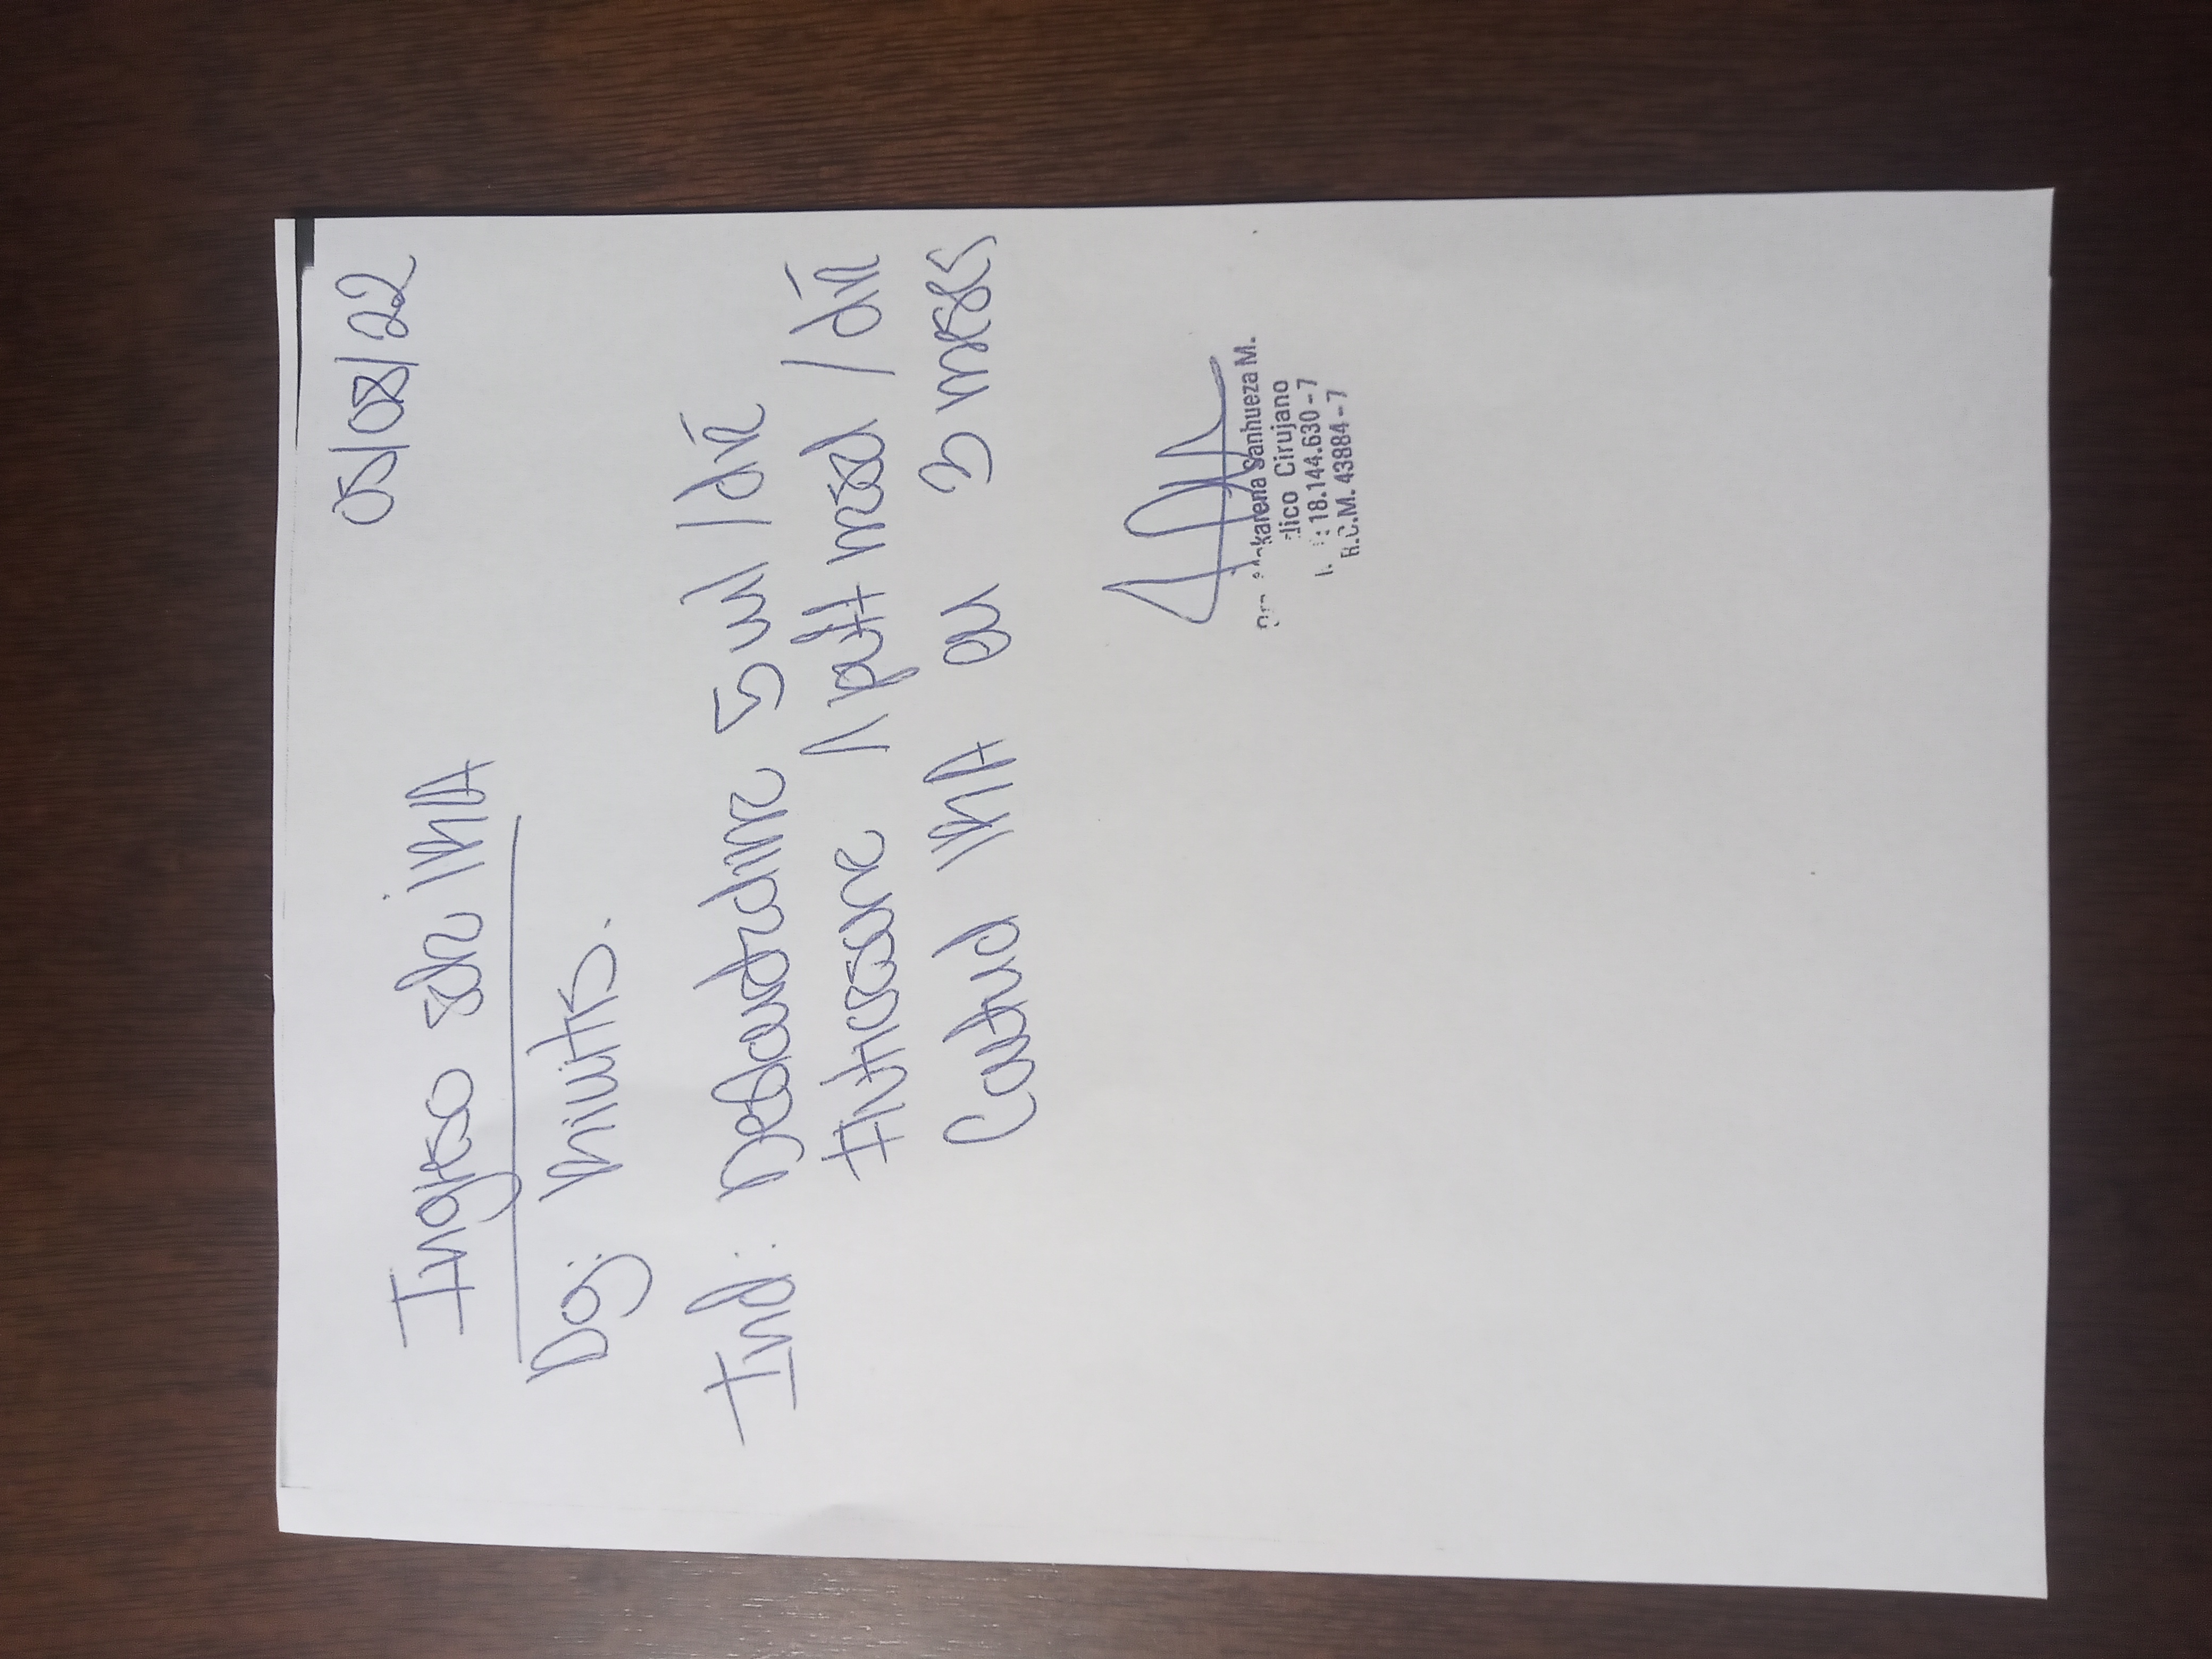 05/08/22
Ingreso sala IRA
Dg: Rinitis.
Ind: Desloratadina 5 ml / día
1 puff nasal / día
Control IRA en 3 meses
Sanhueza M.
Cirujano
: 18.144.630-7
R.C.M. 43884-7